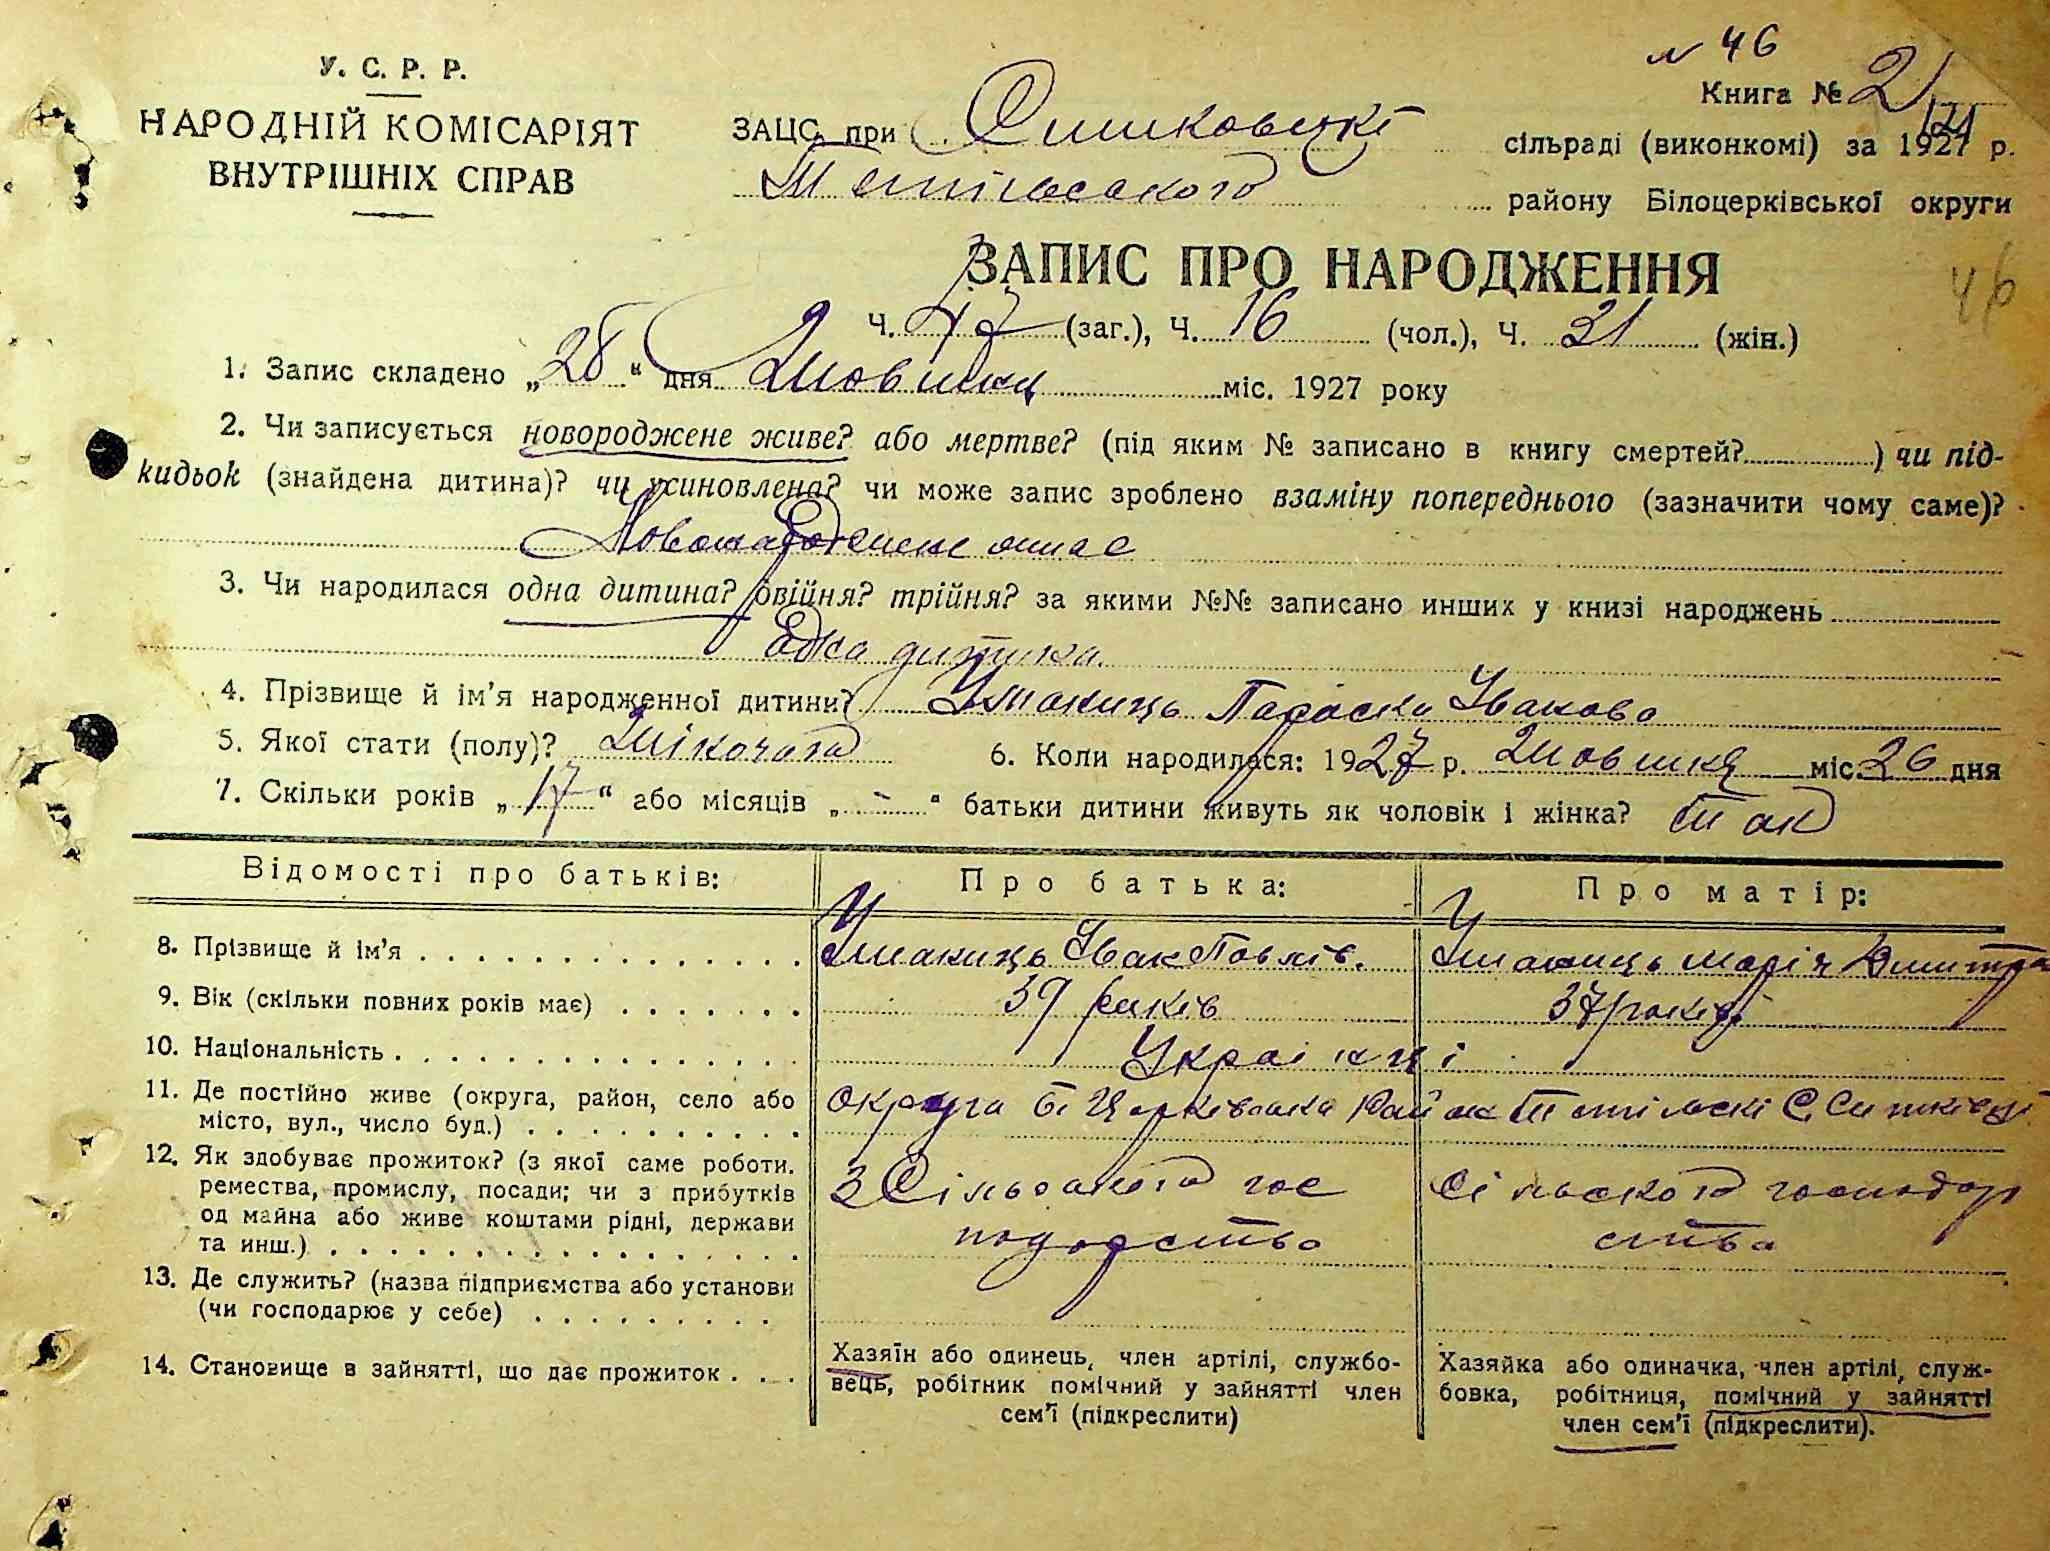 № 46
У. С. Р. Р.
НАРОДНІЙ КОМІСАРІЯТ
ВНУТРІШНІХ СПРАВ
Книга № 2
ЗАЦС при сільраді (виконкомі) за 1927 р.
Тетіївського району Білоцерківської округи
ЗАПИС ПРО НАРОДЖЕННЯ
46
Ч. 47 (заг.), Ч. 16 (чол.), Ч. 31 (жін.)
1. Запис складено „28“ дня Жовтня міс. 1927 року
2. Чи записується новороджене живе? або мертве? (під яким № записано в книгу смертей?) чи під-
кидьок (знайдена дитина)? чи усиновлена? чи може запис зроблено взаміну попереднього (зазначити чому саме)?
3. Чи народилася одна дитина? двійня? трійня? за якими №№ записано инших у книзі народжень
Одна дитина.
4. Прізвище й ім'я народженної дитини? Уманець Параска Іванова
5. Якої стати (полу)? Жіночого 6. Коли народилася: 1927 р. Жовтня міс. 26 дня
7. Скільки років „17“ або місяців „-“ батьки дитини живуть як чоловік і жінка? Так
Відомості про батьків: Про батька: Про матір:
8. Прізвище й ім'я Уманець Іван Павлів. Уманець Марія Дмитр
9. Вік (скільки повних років має) 39 років 37 років
10. Національність Українці
11. Де постійно живе (округа, район, село або округа Б Церківська Район
місто, вул., число буд.)
12. Як здобуває прожиток? (з якої саме роботи. З Сільського гос Сільского господар
ремества, промислу, посади; чи з прибутків подарства ства
од майна або живе коштами рідні, держави
та инш.)
13. Де служить? (назва підприємства або установи
(чи господарює у себе)
14. Становище в зайнятті, що дає прожиток
Хазяїн або одинець, член артілі, службо-
вець, робітник помічний у зайнятті член
сем'ї (підкреслити)
Хазяйка або одиначка, член артілі, служ-
бовка, робітниця, помічний у зайнятті
член сем'ї (підкреслити).